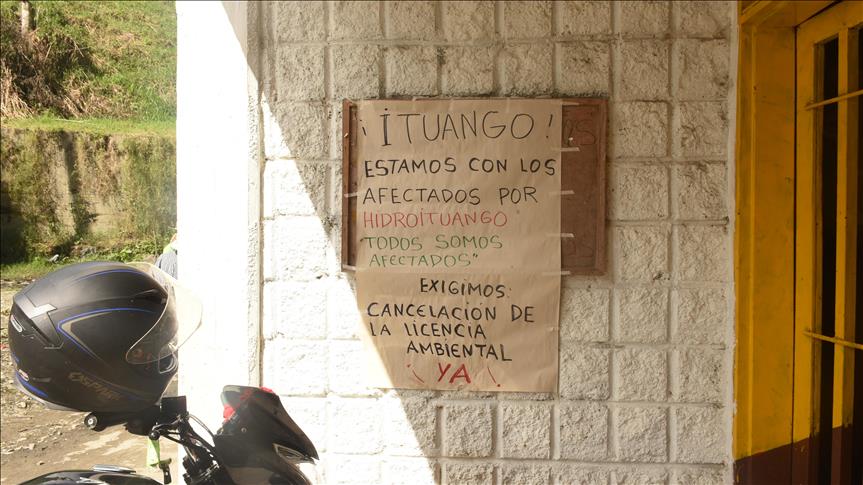 ¡ ITUANGO !
ESTAMOS CON LOS
AFECTADOS POR
HIDROITUANGO
TODOS SOMOS
AFECTADOS"
EXIGIMOS:
CANCELACIÓN DE
LA LICENCIA
AMBIENTAL
¡ YA !